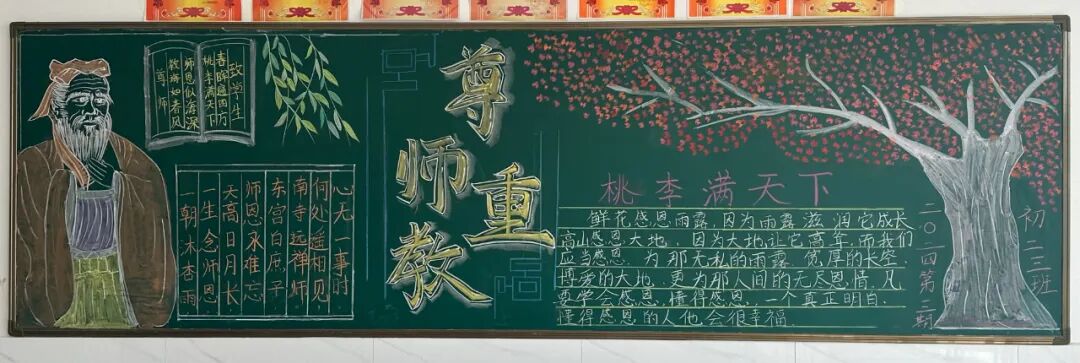 致学生
春晖遍四方
桃李满天下
师恩似海深
教诲如春风
尊师
心无一事时
何处遥相见
南寺远禅师
东宫白庶子
师恩永难忘
天高日月长
一生念师恩
一朝沐杏雨
尊师重教
桃李满天下
鲜花感恩雨露,因为雨露滋润它成长
高山感恩大地,因为大地让它高耸,而我们
应当感恩 为那无私的雨露、宽厚的长空、
博爱的大地,更为那人间的无尽恩情.
要学会感恩,懂得感恩,一个真正明白、
懂得感恩的人他会很幸福.
二〇二四第二期
初二三班